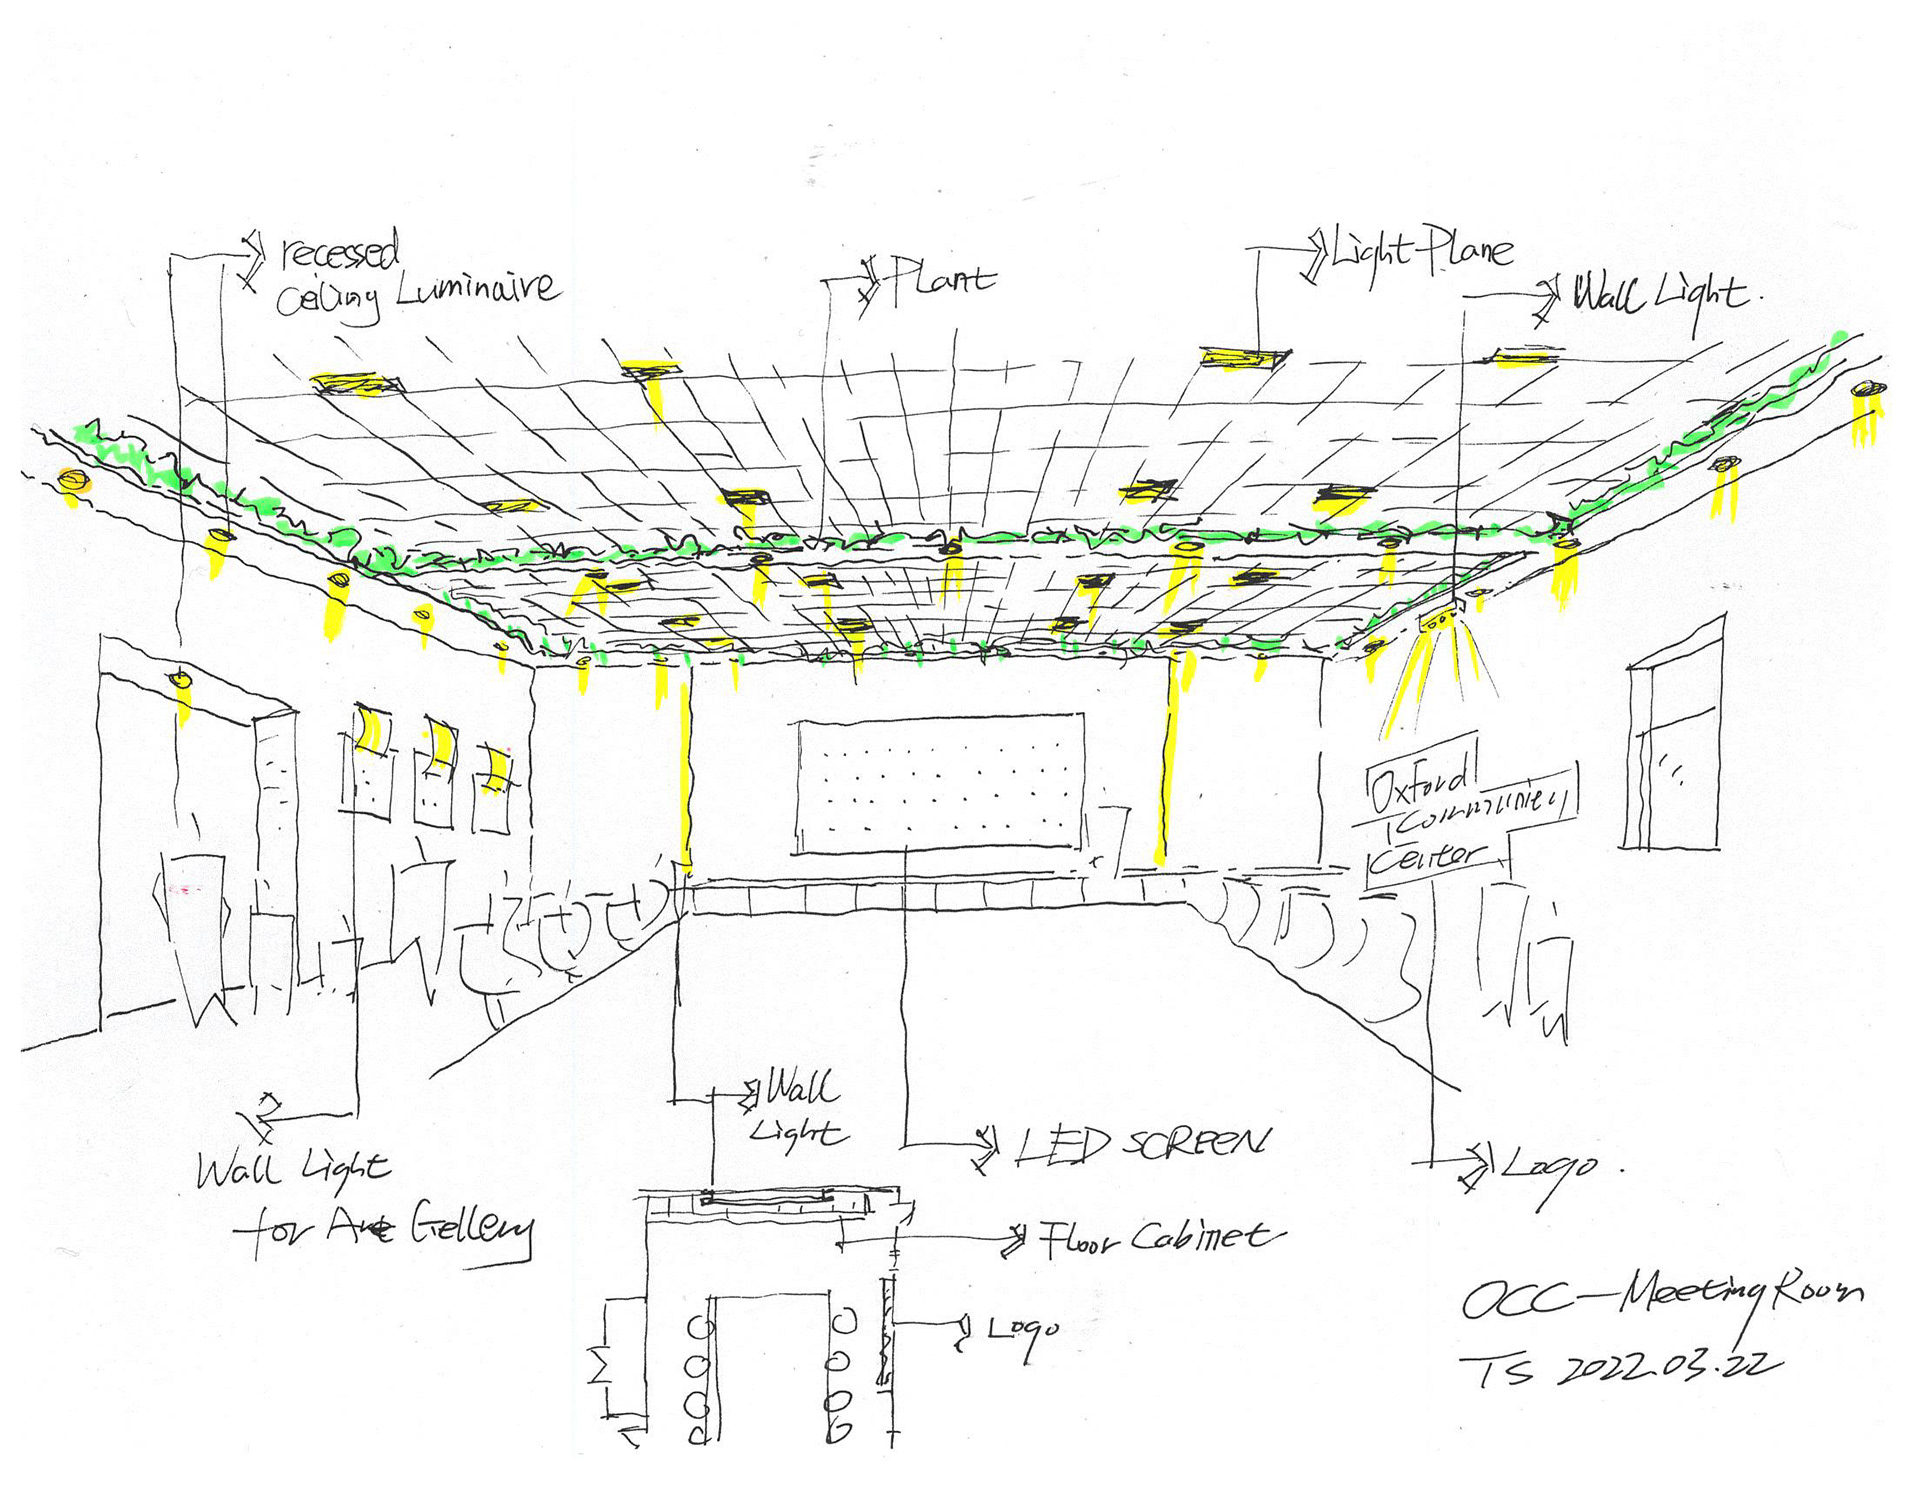 recessed
Ceiling Luminaire
Plant
Light Plane
Wall Light.
Oxford
Community
Center
Wall
Light
LED SCREEN
Logo.
Wall Light
for Art Gellery
Floor Cabinet
Logo
OCC-Meeting Room
TS 2022.03.22